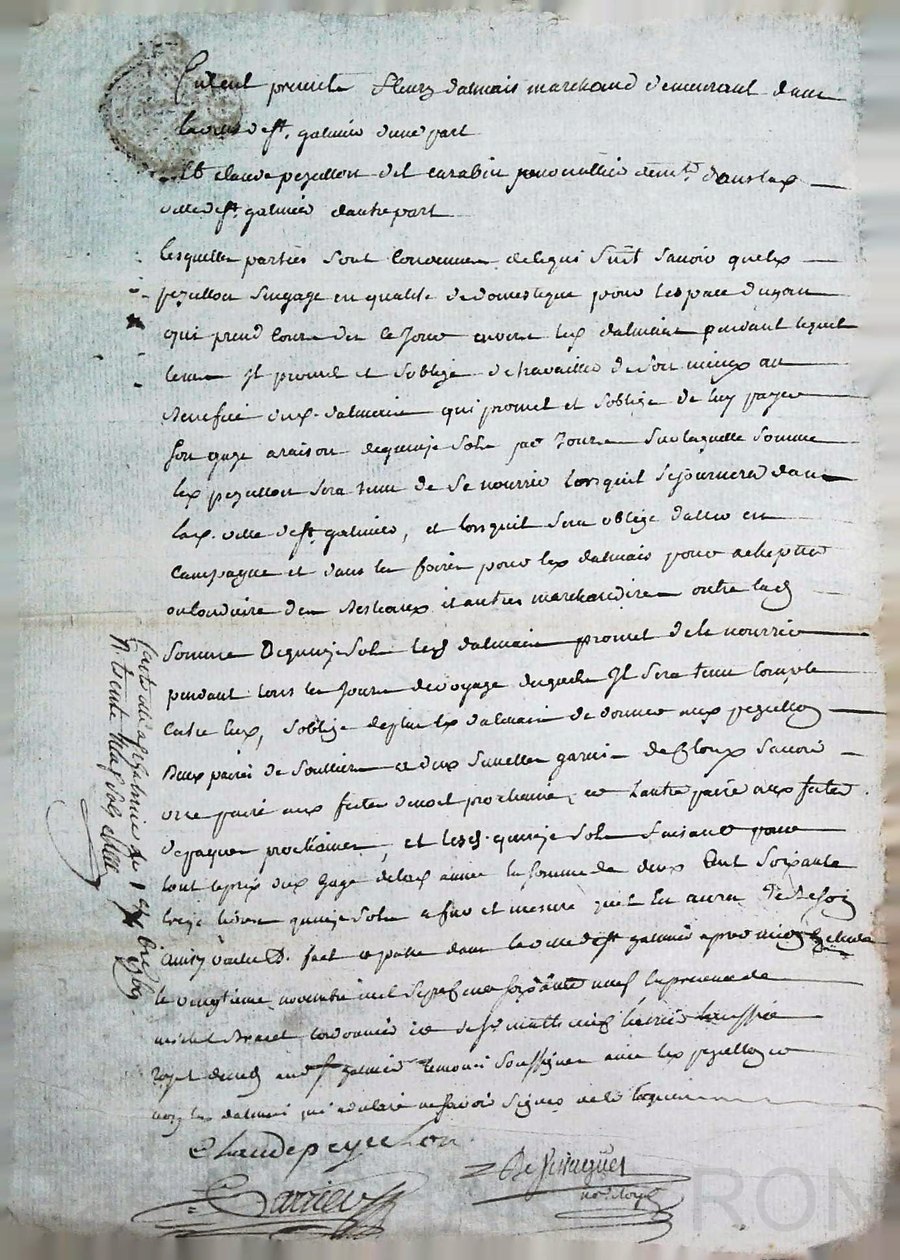 furent presents fleury dalmais marchand demeurant dans
la ville de st. galmier d'une part
et claude pezellon dit carabin demt. dans lad
ville de st galmier dautre part
lesquelles parties sont convenues de ce qui suit savoir que led
pezellon sengage en qualité de domestique pour lespace dun an
qui prend cours des ce jour envers led dalmais pendant lequel
tems il promet et soblige de travailler de son mieux au
benefice dud. dalmais qui promet et soblige de luy payer
son gage a raison de quinze sols par jour sur laquelle somme
led pezellon sera tenu de se nourrir lorsquil sejournera dans
lad. ville de st galmier, et lorsquil sera obligé daller en
campagne et dans les foires pour led dalmais pour achepter
ou conduire des bestiaux et autres marchandises outre lad
somme de quinze sols led dalmais promet de le nourrir
pendant tous les jours de voyage desquels il sera tenu compte
entre eux, soblige de plus led dalmais de donner aud pezellon
deux paires de soulliers et deux semelles garnies de cloux savoir
une paire aux fetes de noel prochaines, et lautre paire aux fetes
de paques prochaines, et lesd. quinze sols faisant pour
tout le prix dud gage de lad année la somme de deux cent soixante
treize livres quinze sols a fur et mesure quil en aura de besoin
ainsy voulu. fait et passé dans la ville de st galmier apres midy
le vingtieme novembre mil sept cens soixante neuf en presence de
michel cordonnier et de sr mathieu
royal dud st galmier temoins soussignes avec led pezellon et
non led dalmais qui a declaré ne savoir signer de ce requis
Claude peyzellon
Barrieu
De
nore. royal
Controllé a st galmier le 1 xbre 1769.
R. trente neuf sols